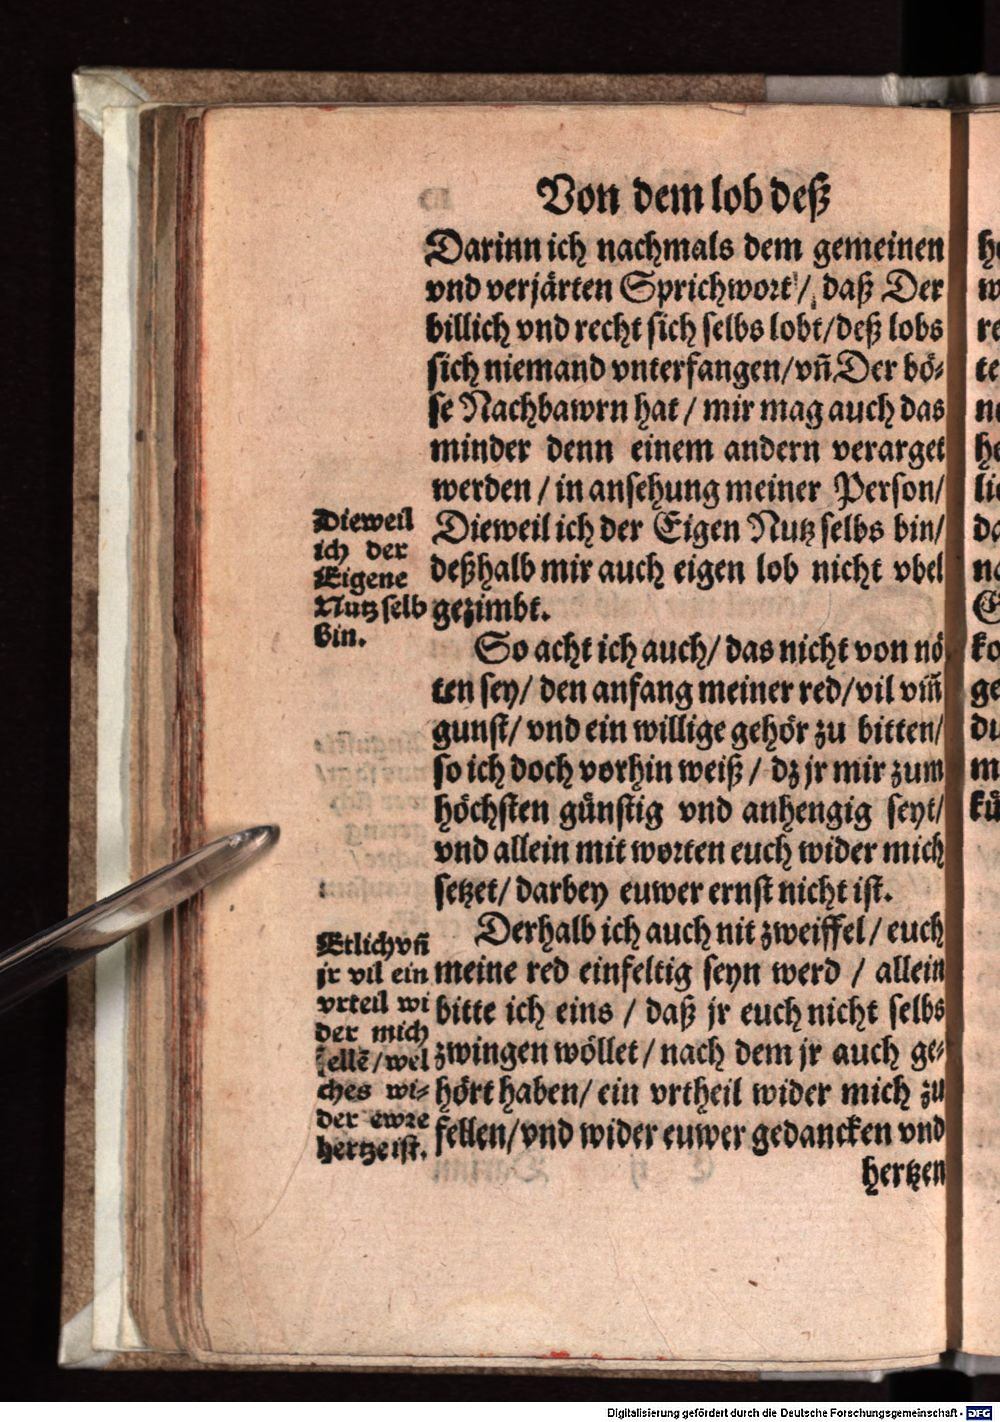 Von dem lob deß
Darinn ich nachmals dem gemeinen
vnd verjärten Sprichwort / daß Der
billich vnd recht sich selbs lobt/deß lobs
sich niemand vnterfangen/vñ Der bö⸗
se Nachbawrn hat / mir mag auch das
minder denn einem andern verarget
werden / in ansehung meiner Person/
Dieweil ich der Eigen Nutz selbs bin/
deßhalb mir auch eigen lob nicht vbel
gezimbt.
Dieweil
ich der
Eigene
Nutz selb
bin.
So acht ich auch/ das nicht von nö
ten sey/ den anfang meiner red/vil vm̃
gunst/ vnd ein willige gehör zu bitten/
so ich doch vorhin weiß / dz jr mir zum
höchsten günstig vnd anhengig seyt/
vnd allein mit worten euch wider mich
setzet/ darbey euwer ernst nicht ist.
Derhalb ich auch nit zweiffel / euch
meine red einfeltig seyn werd / allein
bitte ich eins / daß jr euch nicht selbs
zwingen wöllet / nach dem jr auch ge⸗
hört haben/ ein vrtheil wider mich zu
fellen/vnd wider euwer gedancken vnd
hertzen
Etlich vñ
jr vil ein
vrteil wi
der mich
fellē/wel
ches wi⸗
der ewre
hertze ist.
Digitalisierung gefördert durch die Deutsche Forschungsgemeinschaft - DFG